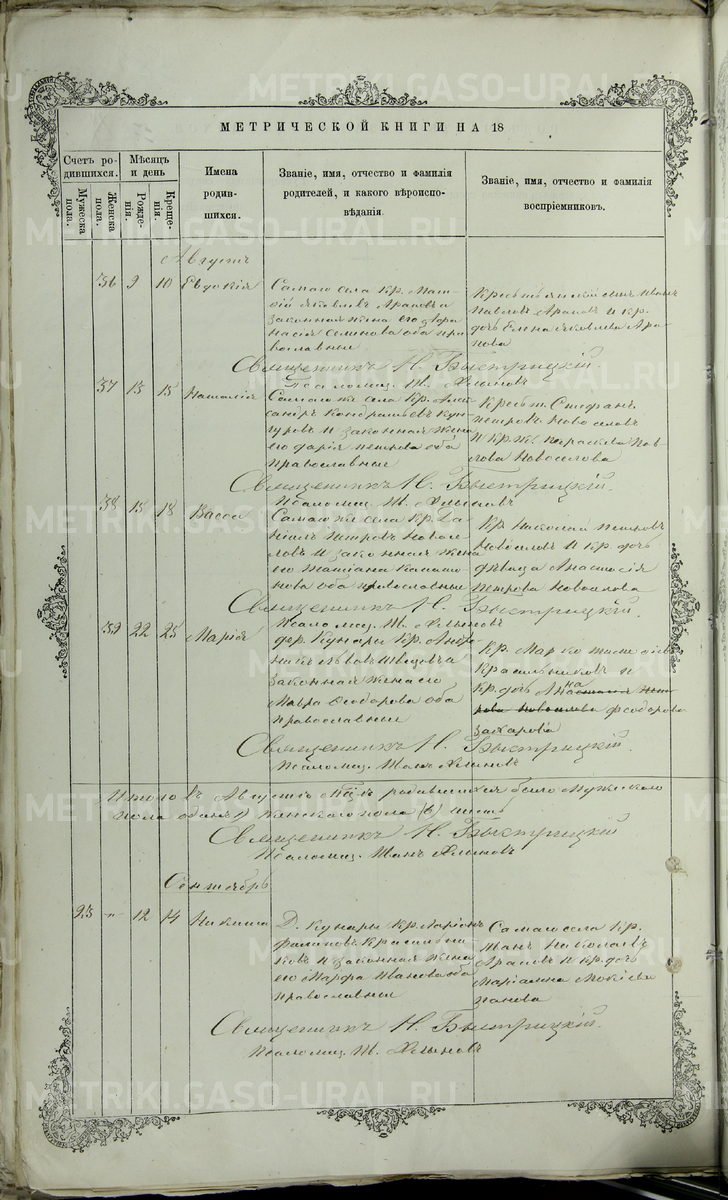 METRIKI.GASO-URAL.RU
МЕТРИЧЕСКОЙ КНИГИ НА 18
Счетъ ро-
дившихся.
Мужеска
пола.
Женска
пола.
Мѣсяцъ
и день
Рожде-
нія.
Креще-
нія.
Имена
родив-
шихся.
Званіе, имя, отчество и фамилія
родителей, и какого вѣроиспо-
вѣданія
Званіе, имя, отчество и фамилія
воспріемниковъ.
Августъ
36 9 10 Евдокія
Самаго села Кр. Мат-
ѳій Яковлевъ Араповъ
законная жена его
Семенова оба пра
вославные
Крестьянскій сынъ Иванъ
Павловъ Араповъ и кр.
дочь Елена Яковлева Ара-
пова
Священникъ Н. Быстрицкій.
37 13 15 Наталія
Самаго же села Кр. Алек
сандръ Кондратьевъ
и законная жена
его Дарія Петрова оба
православные
Крест. Стефанъ
Петровъ Новоселовъ
и кр. ж. Параскева Пав
лова Новоселова
Священникъ Н. Быстрицкій.
38 15 18 Васса
Самаго же села Кр. Да
ніилъ Петровъ Новосе
ловъ и законная жена
его Татіана
оба православные
Кр. Николай Петровъ
Новоселовъ и кр. дочь
дѣвица Анастасія
Петрова Новоселова
Священникъ Н. Быстрицкій.
39 22 25 Марія
дер. Кунары Кр.
законная жена его
Мавра Ѳеодорова оба
православные
Кр. Марко
Красильниковъ и
кр. дочь Анна
Ѳеодорова
Захарова
Священникъ Н. Быстрицкій.
Псаломщ. Иванъ
Итого въ Августѣ м-цѣ родившихся было Мужескаго
пола одинъ (1) Женскаго пола (6) шесть
Священникъ Н. Быстрицкій
Псаломщ. Иванъ
Сентябрь
23 " 12 14 Никита
Д. Кунары Кр. Ларіонъ
Филиповъ Красильни
ковъ и законная жена
его Марфа Иванова оба
православные
Самаго села Кр.
Иванъ Николаевъ
Араповъ и кр. дочь
Маріамна Мокіева
Священникъ Н. Быстрицкій.
Псаломщ. И.